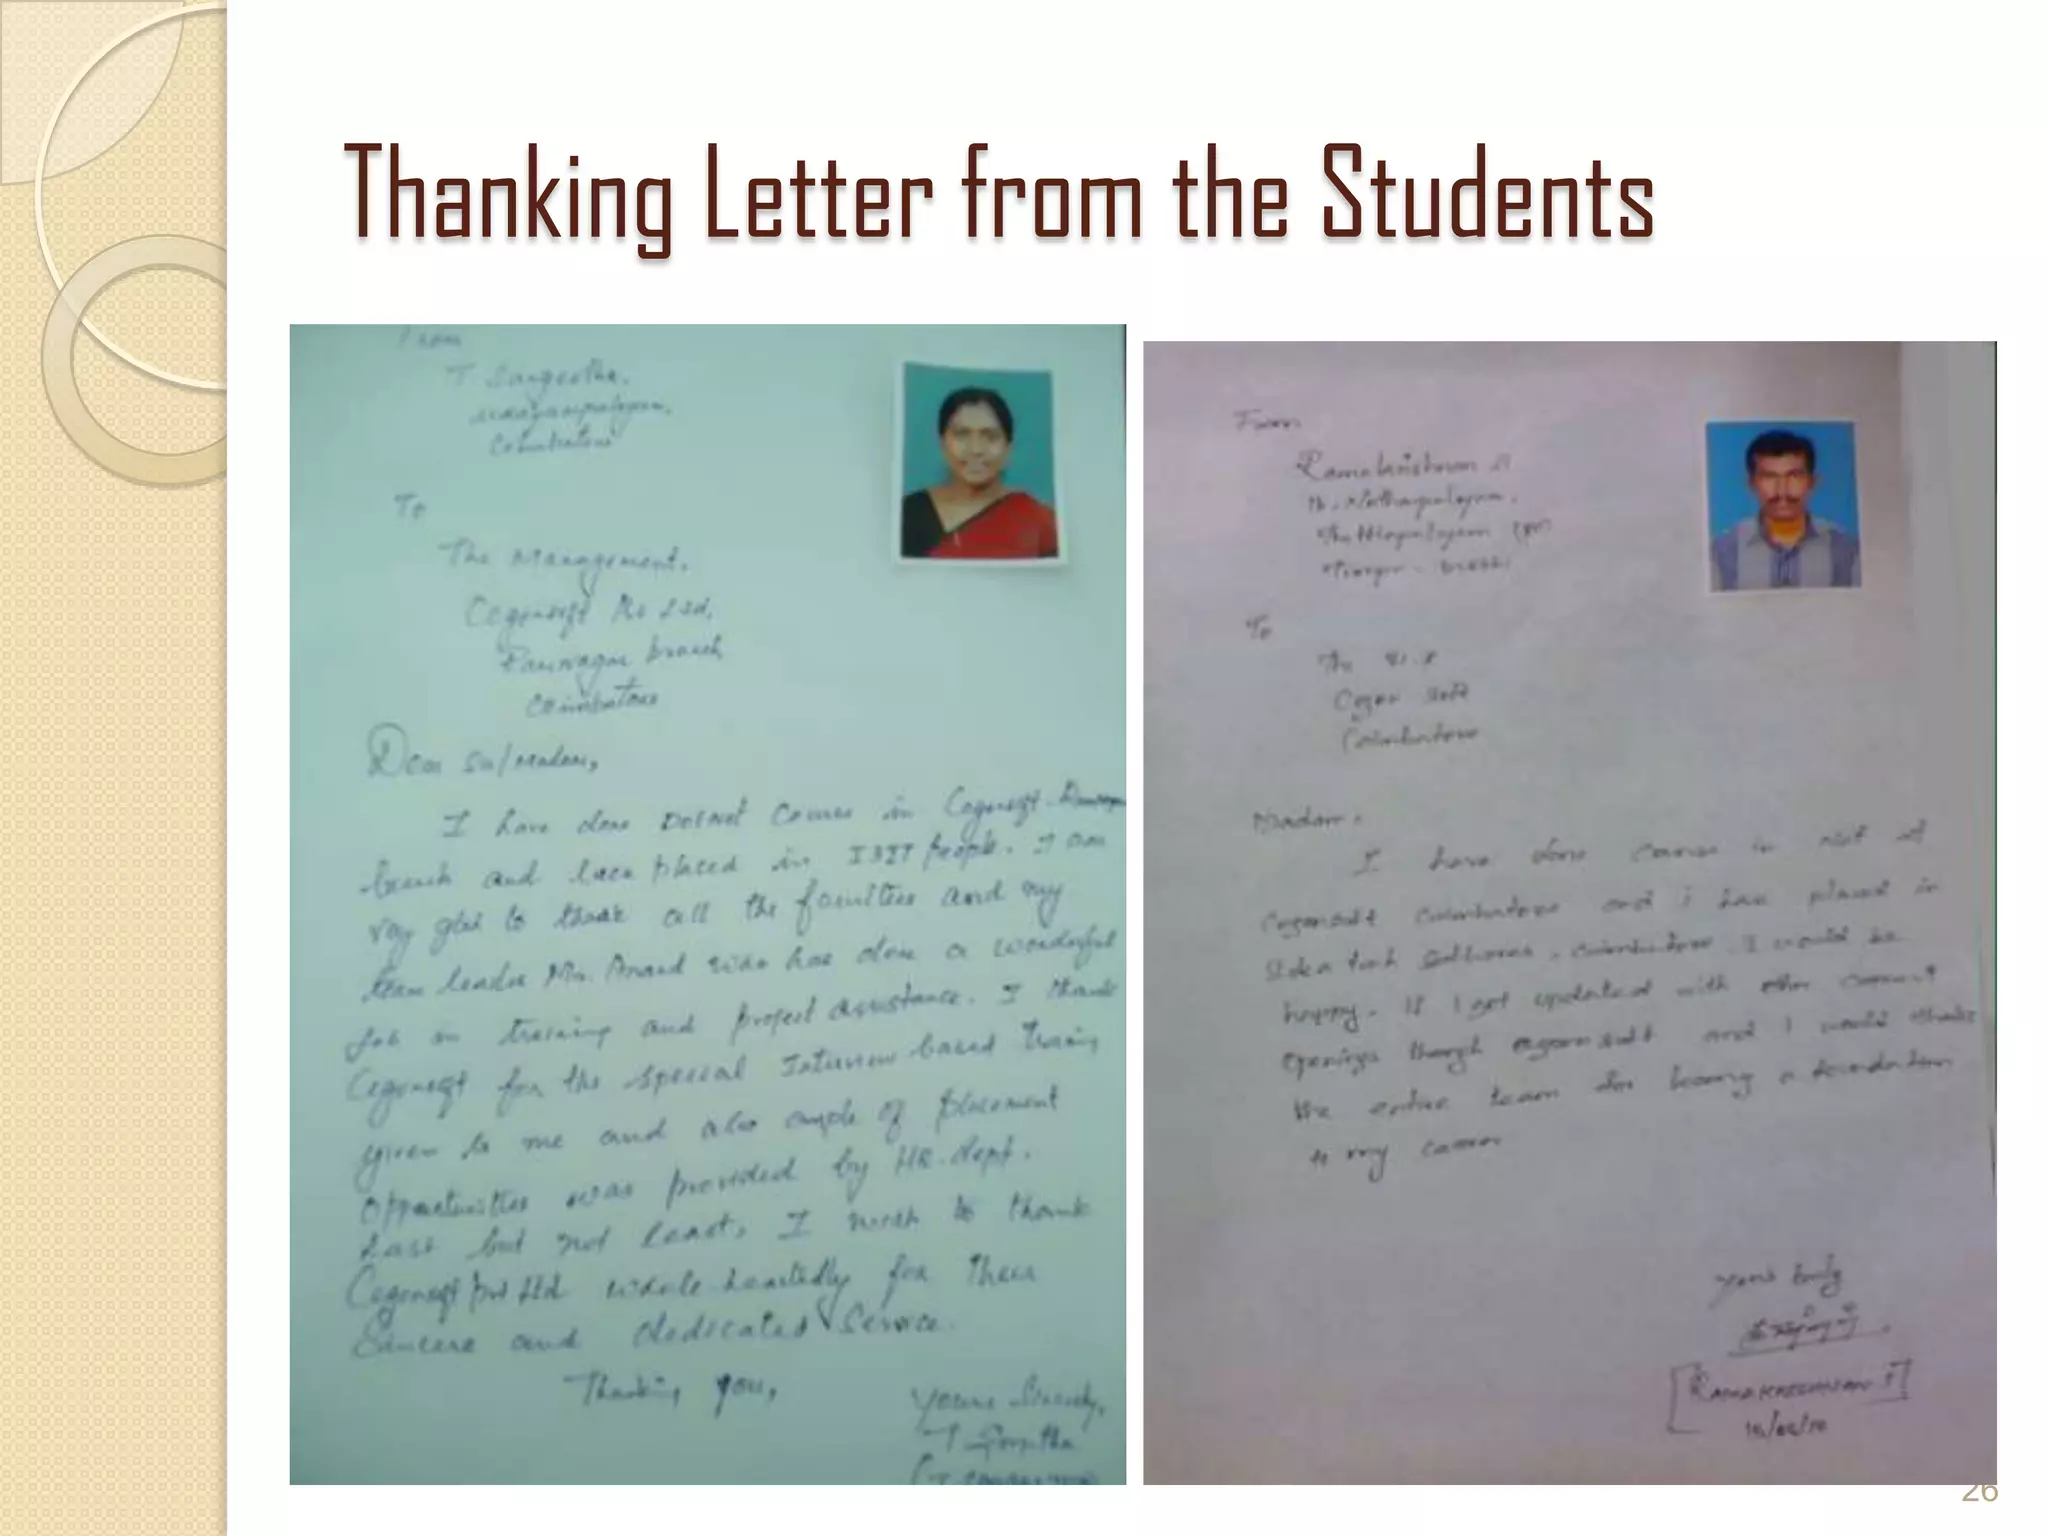 Thanking Letter from the Students
From
T Sangeetha,
Coimbatore
To
The Management,
Cogensoft
branch
Coimbatore
Dear Sir/Madam,
I have done Dotnet Course in Cogensoft
branch and have placed in people. I am
very glad to thank all the faculties and my
team leader Mr. Anand who has done a wonderful
job in training and project assistance. I thank
Cogensoft for the special Interview based training
given to me and also ample of placement
opportunities was provided by HR-dept.
Last but not least, I wish to thank
Cogensoft pvt ltd whole-heartedly for their
Sincere and dedicated Service.
Thanking you,
Yours Sincerely,
T Sangeetha
From
Ramakrishnan
To
The
Cogen soft
Coimbatore
Madam,
I have done course in at
Cogensoft Coimbatore and i have placed in
Coimbatore. I would be
happy. If I get updated with other current
openings though cogensoft and I would thank
the entire team for being a foundation
to my career
Yours truly
RAMAKRISHNAN
26